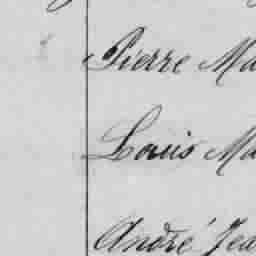 Pierre Ma
Louis Ma
André Jea